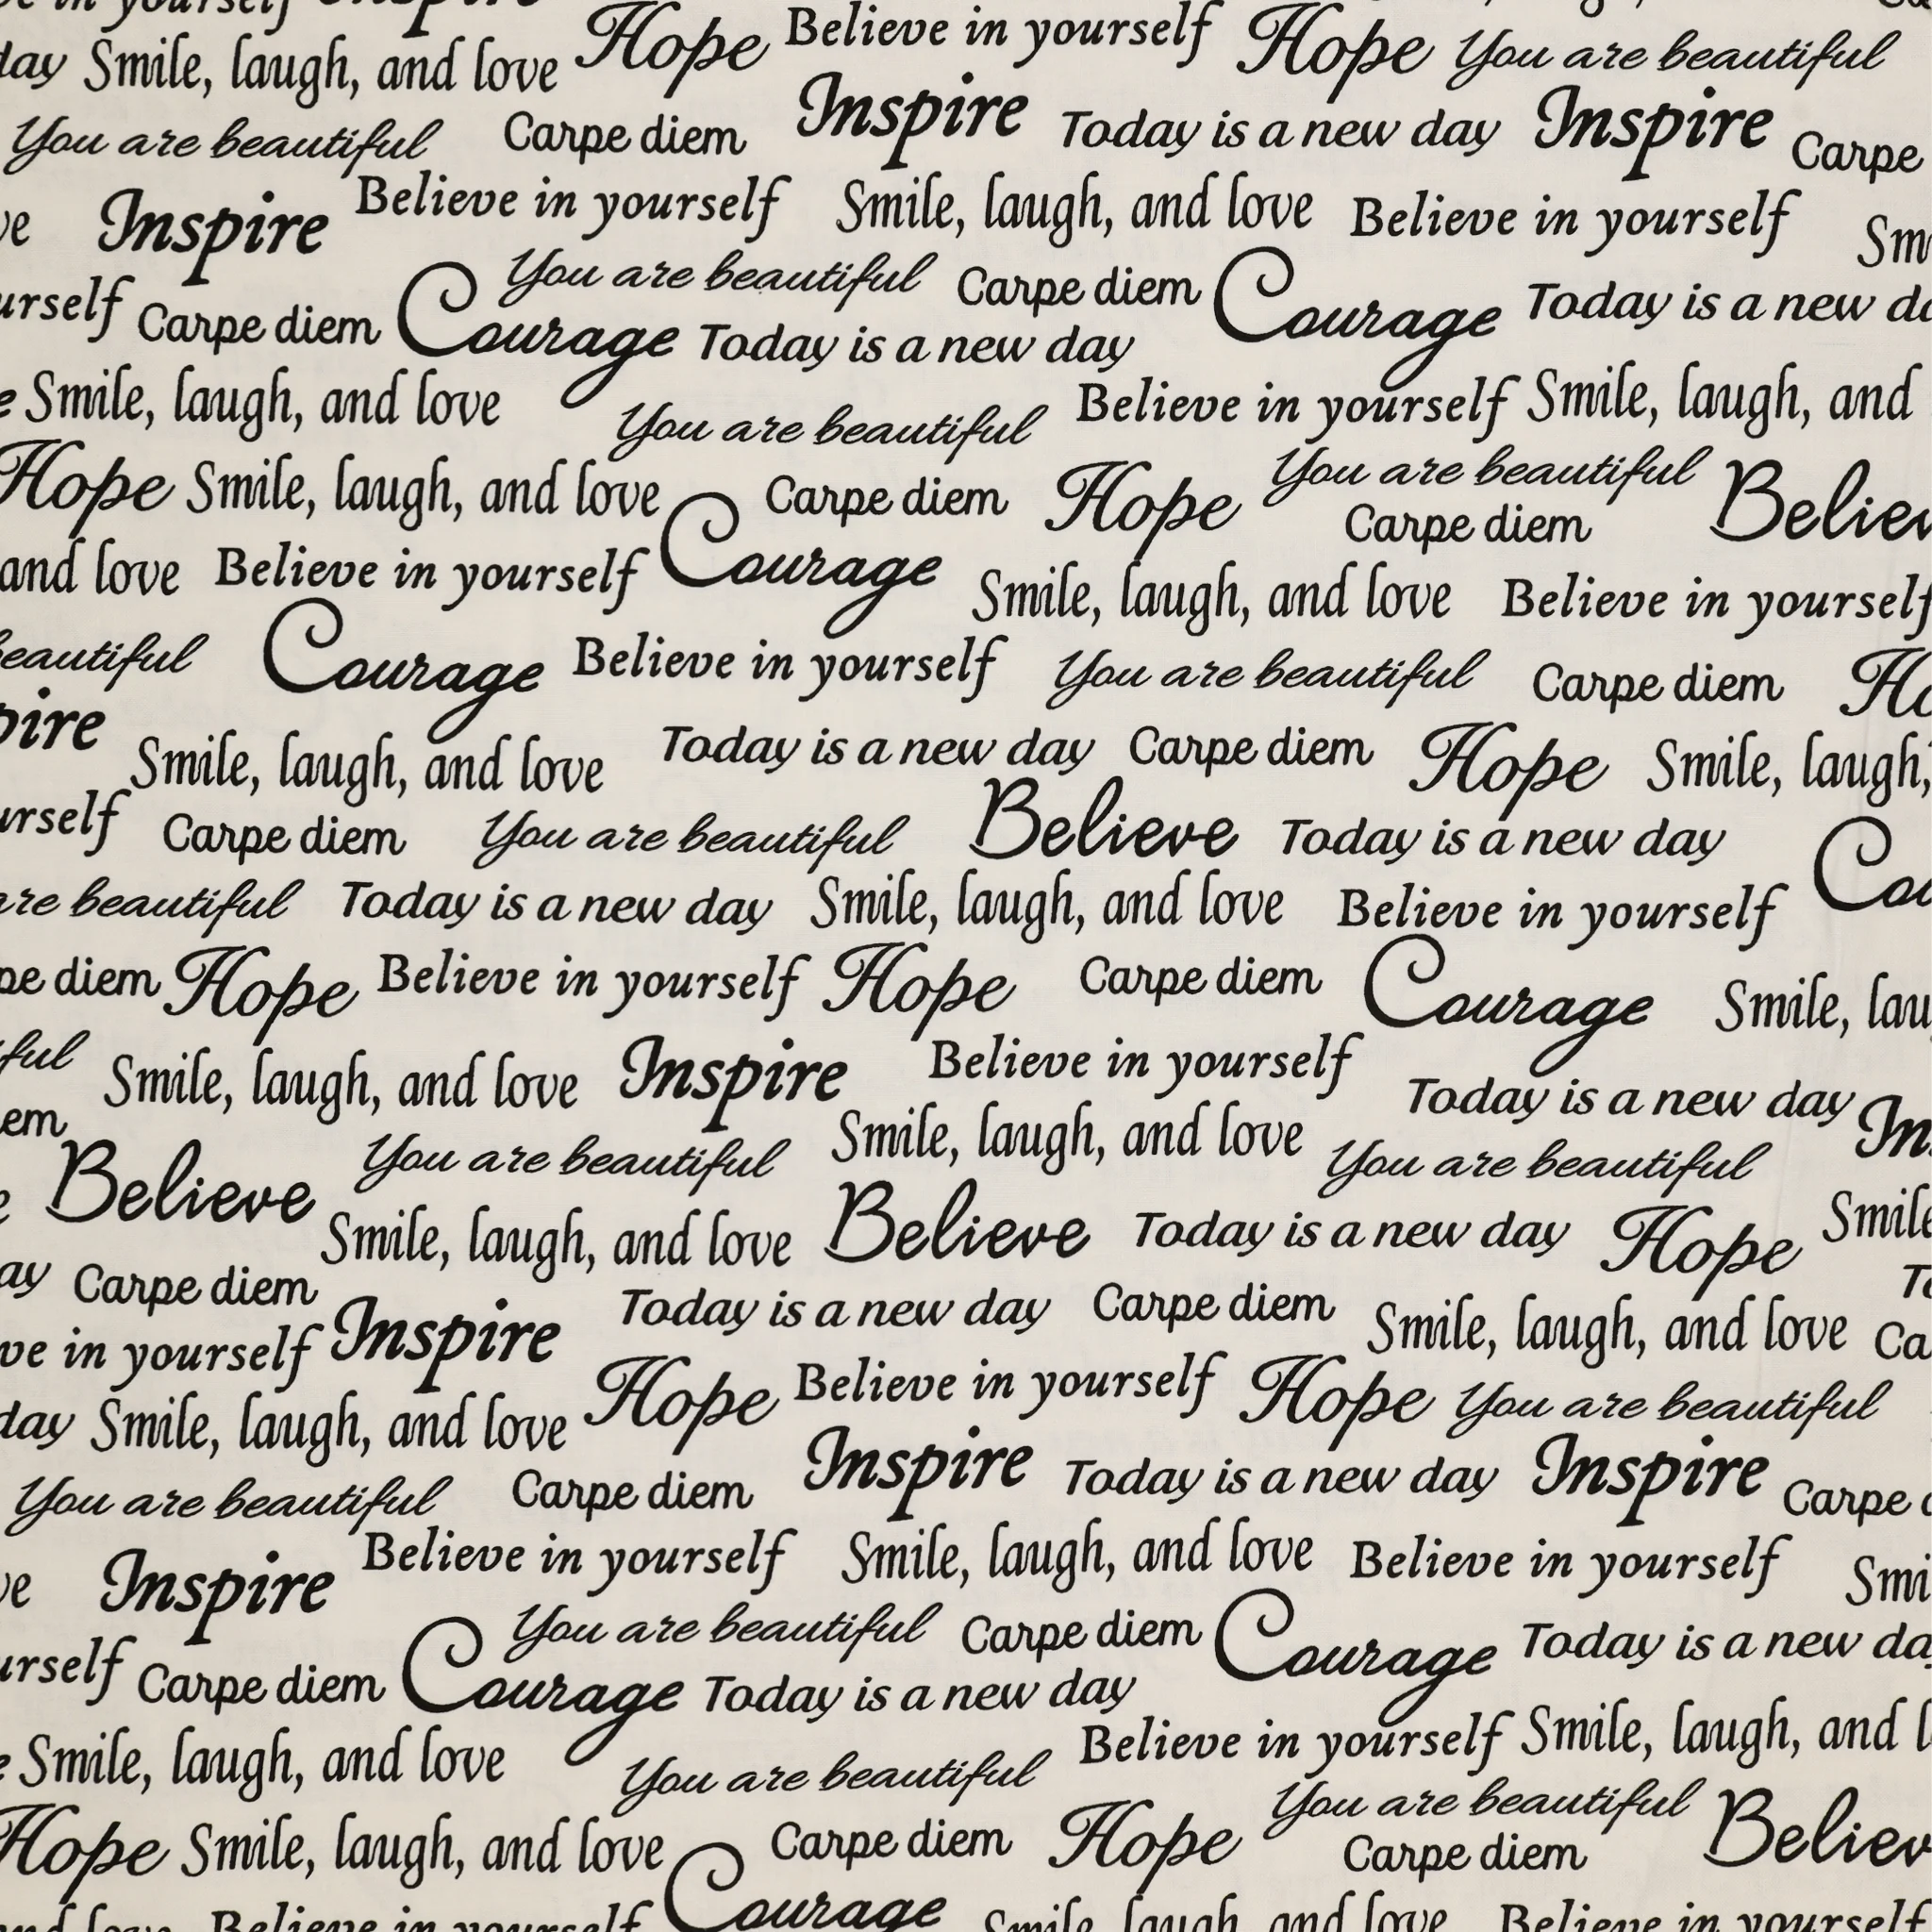 in yourself Inspire
day Smile, laugh, and love Hope Believe in yourself Hope You are beautiful
You are beautiful Carpe diem Inspire Today is a new day Inspire Carpe
Inspire Believe in yourself Smile, laugh, and love Believe in yourself Sm
urself Carpe diem Courage You are beautiful Carpe diem Courage Today is a new
Today is a new day
Smile, laugh, and love You are beautiful Believe in yourself Smile, laugh, and
Hope Smile, laugh, and love Courage Carpe diem Hope You are beautiful Believ
Carpe diem
and love Believe in yourself Smile, laugh, and love Believe in yourself
eautiful Courage Believe in yourself You are beautiful Carpe diem Ho
pire Smile, laugh, and love Today is a new day Carpe diem Hope Smile, laugh,
urself Carpe diem You are beautiful Believe Today is a new day Cou
are beautiful Today is a new day Smile, laugh, and love Believe in yourself
pe diem Hope Believe in yourself Hope Carpe diem Courage Smile, lau
ful Smile, laugh, and love Inspire Believe in yourself Today is a new day Ins
em You are beautiful Smile, laugh, and love You are beautiful
Believe Smile, laugh, and love Believe Today is a new day Hope Smile
ay Carpe diem Today is a new day Carpe diem Smile, laugh, and love To
ve in yourself Inspire Ca
day Smile, laugh, and love Hope Believe in yourself Hope You are beautiful
You are beautiful Carpe diem Inspire Today is a new day Inspire Carpe
ve Inspire Believe in yourself Smile, laugh, and love Believe in yourself Smi
urself Carpe diem Courage You are beautiful Carpe diem Courage Today is a new da
Today is a new day
Smile, laugh, and love You are beautiful Believe in yourself Smile, laugh, and l
Hope Smile, laugh, and love Courage Carpe diem Hope You are beautiful Believ
Carpe diem
and love Believe in yourself Smile, laugh, and love Believe in yourself